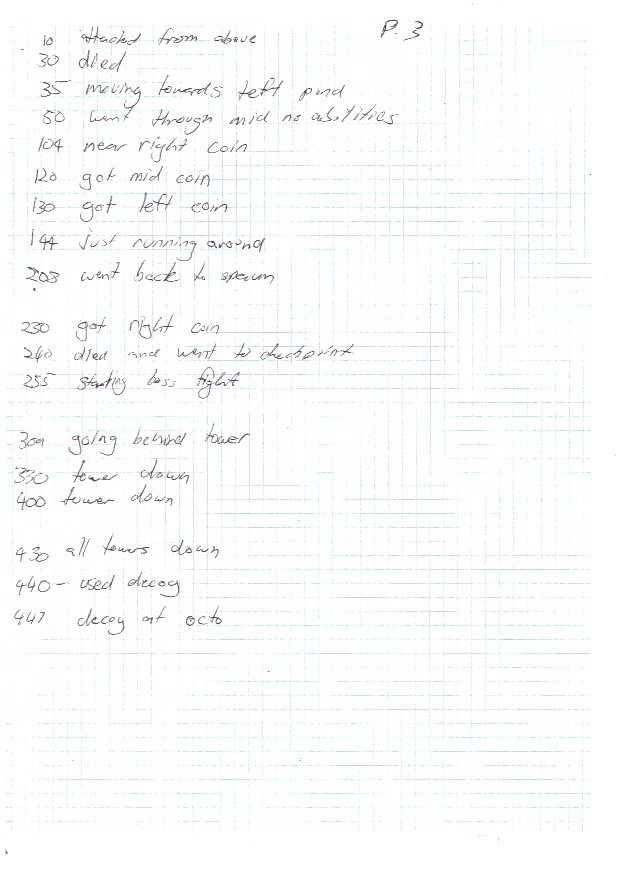 P. 3
10 attacked from above
30 died
35 moving towards left pond
50 went through mid no abilities
104 near right coin
120 got mid coin
130 got left coin
144 just running around
203 went back to spawn
230 got right coin
240 died and went to checkpoint
255 starting boss fight
309 going behind tower
330 tower down
400 tower down
430 all towers down
440 - used decoy
447 decoy at octo